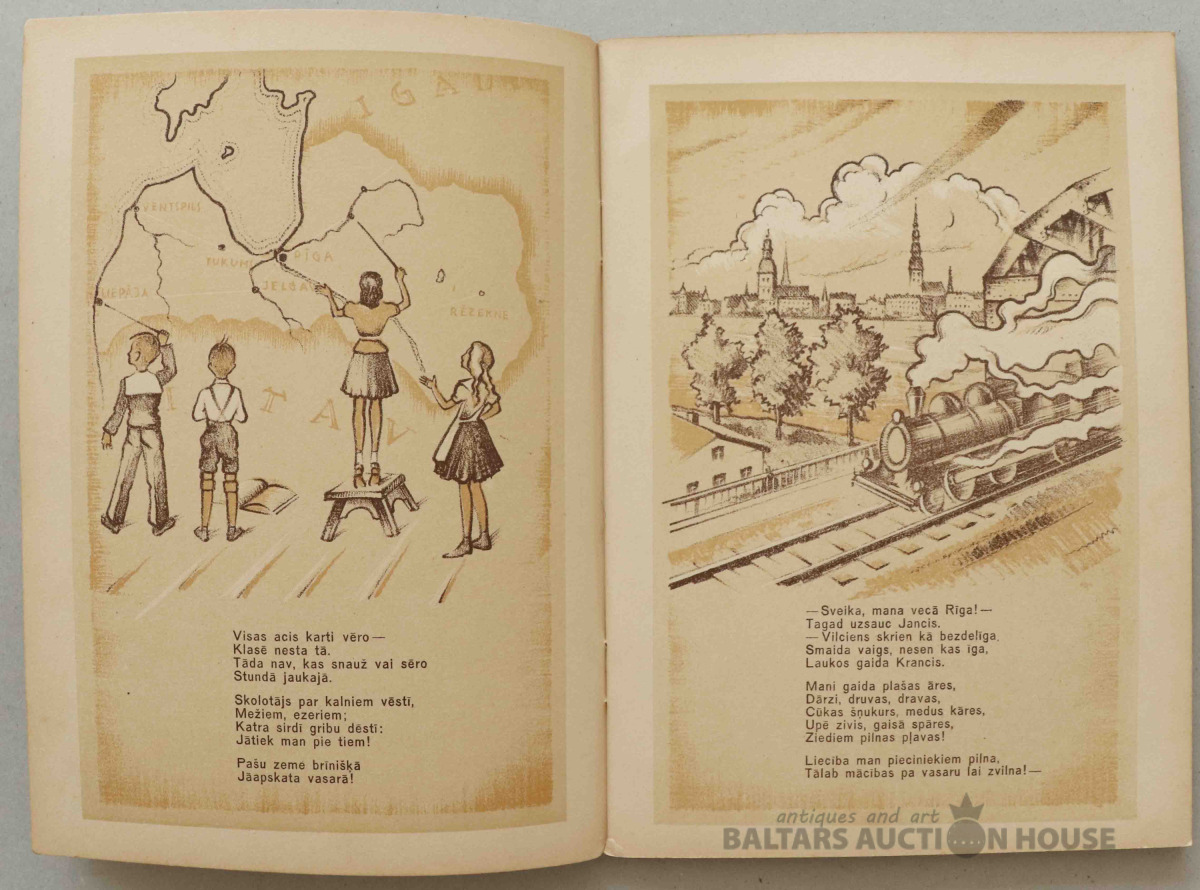 IGAU
VENTSPILS
RĪGA
JELGA
RĒZEKNE
LIETAV
Visas acis karti vēro —
Klasē nesta tā.
Tāda nav, kas snauž vai sēro
Stundā jaukajā.
Skolotājs par kalniem vēstī,
Mežiem, ezeriem;
Katra sirdī gribu dēstī:
Jātiek man pie tiem!
Pašu zeme brīnišķā
Jāapskata vasarā!
— Sveika, mana vecā Rīga! —
Tagad uzsauc Jancis.
— Vilciens skrien kā bezdelīga,
Smaida vaigs, nesen kas īga,
Laukos gaida Krancis.
Mani gaida plašas āres,
Dārzi, druvas, dravas,
Cūkas šņukurs, medus kāres,
Upē zivis, gaisā spāres,
Ziediem pilnas pļavas!
Liecība man pieciniekiem pilna,
Tālab mācības pa vasaru lai zvilna! —
antiques and art
BALTARS AUCTION HOUSE